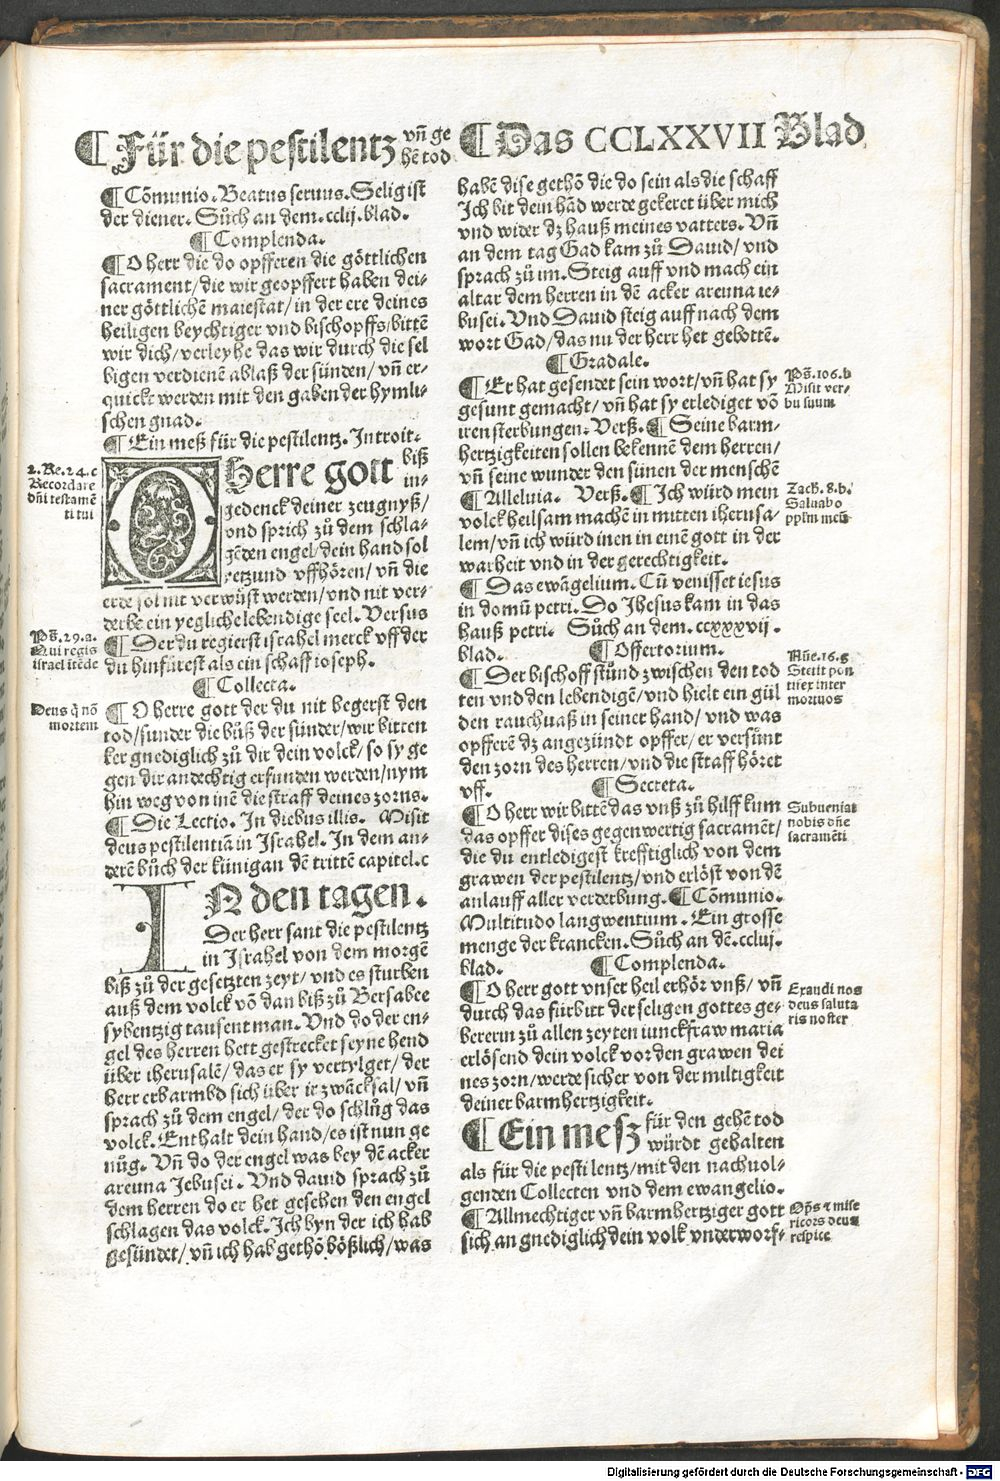 ¶ Für die pestilentz vñ ge
hẽ tod
¶ Das CCLXXVII Blad
¶ Cõmunio. Beatus seruus. Selig ist
der diener. Sůch an dem. cclij. blad.
¶ Complenda.
¶ O herr die do opfferen die göttlichen
sacrament/ die wir geopffert haben dei-
ner göttlichẽ maiestat/ in der ere deines
heiligen beychtiger vnd bischopffs/ bittẽ
wir dich/ verleyhe das wir durch die sel
bigen verdienẽ ablaß der sünden/ vñ er-
quickt werden mit den gaben der hymli-
schen gnad.
¶ Ein meß für die pestilentz. Introit.
2. Re. 24. c
Recordare
dñi testamẽ
ti tui
O herre gott biß
in-
gedenck deiner zeugnyß/
vnd sprich zů dem schla-
gẽden engel/ dein hand sol
yetzund vffhören/ vñ die
erde sol nit verwüst werden/ vnd nit ver-
derbe ein yegliche lebendige seel. Versus
Ps̃. 29. a.
Qui regis
israel itẽde
¶ Der du regierst israhel merck vff der
du hinfürest als ein schaff ioseph.
¶ Collecta.
Deus q̃ nõ
mortem
¶ O herre gott der du nit begerst den
tod/ sunder die bůß der sünder/ wir bitten
ker gnediglich zů dir dein volck/ so sy ge
gen dir andechtig erfunden werden/ nym
hin weg von inẽ die straff deines zorns.
¶ Die Lectio. In diebus illis. Misit
deus pestilentiã in Israhel. In dem an-
derẽ bůch der künig an dẽ trittẽ capitel. c
IN den tagen.
Der herr sant die pestilentz
in Israhel von dem morgẽ
biß zů der gesetzten zeyt/ vnd es sturben
auß dem volck võ dan biß zů Bersabee
sybentzig tausent man. Vnd do der en-
gel des herren hett gestrecket seyne hend
über iherusalẽ/ das er sy vertylget/ der
herr erbarmbd sich über ir zwãcksal/ vñ
sprach zů dem engel/ der do schlůg das
volck. Enthalt dein hand/ es ist nun ge
nůg. Vñ do der engel was bey dẽ acker
areuna Jebusei. Vnd dauid sprach zů
dem herren do er het gesehen den engel
schlagen das volck. Ich byn der ich hab
gesündet/ vñ ich hab gethõ bößlich/ was
habẽ dise gethõ die do sein als die schaff
Ich bit dein hãd werde gekeret über mich
vnd wider dz hauß meines vatters. Vñ
an dem tag Gad kam zů Dauid/ vnd
sprach zů im. Steig auff vnd mach ein
altar dem herren in dẽ acker areuna ie-
busei. Vnd Dauid steig auff nach dem
wort Gad/ das nu der herr het gebottẽ.
¶ Gradale.
Ps̃. 106. b
Misit ver-
bu suum
¶ Er hat gesendet sein wort/ vñ hat sy
gesunt gemacht/ vñ hat sy erlediget võ
iren sterbungen. Verß. ¶ Seine barm-
hertzigkeiten sollen bekennẽ dem herren/
vñ seine wunder den sünen der menschẽ
Zach. 8. b.
Saluabo
pplm̃ meũ
¶ Alleluia. Verß. ¶ Ich würd mein
volck heilsam machẽ in mitten iherusa-
lem/ vñ ich würd inen in einẽ gott in der
warheit vnd in der gerechtigkeit.
¶ Das ewãgelium. Cũ venisset iesus
in domũ petri. Do Jhesus kam in das
hauß petri. Sůch an dem. ccxxxvij.
blad. ¶ Offertorium.
Nũe. 16. g
Stetit pon
tifex inter
mortuos
¶ Der bischoff stůnd zwischen den tod
ten vnd den lebendigẽ/ vnd hielt ein gül
den rauchuaß in seiner hand/ vnd was
opfferẽ dz angezündt opffer/ er versůnt
den zorn des herren/ vnd die straff höret
vff. ¶ Secreta.
Subueniat
nobis dñe
sacramẽti
¶ O herr wir bittẽ das vnß zů hilff kum
das opffer dises gegenwertig sacramẽt/
die du entledigest krefftiglich von dem
grawen der pestilentz/ vnd erlöst von dẽ
anlauff aller verderbung. ¶ Cõmunio.
Multitudo langwentium. Ein grosse
menge der krancken. Sůch an dẽ. ccluj.
blad. ¶ Complenda.
Exaudi nos
deus saluta
ris noster
¶ O herr gott vnser heil erhör vnß/ vñ
durch das fürbitt der seligen gottes ge-
bererin zů allen zeyten iunckfraw maria
erlösend dein volck vor den grawen dei
nes zorn/ werde sicher von der miltigkeit
deiner barmhertzigkeit.
¶ Ein mess für den gehẽ tod
würdt gehalten
als für die pestilentz/ mit den nachuol-
genden Collecten vnd dem ewangelio.
Op̃s & mise
ricors deus
respice
¶ Allmechtiger vñ barmhertziger gott
sich an gnediglich dein volk vnderworf-
Digitalisierung gefördert durch die Deutsche Forschungsgemeinschaft - DFG